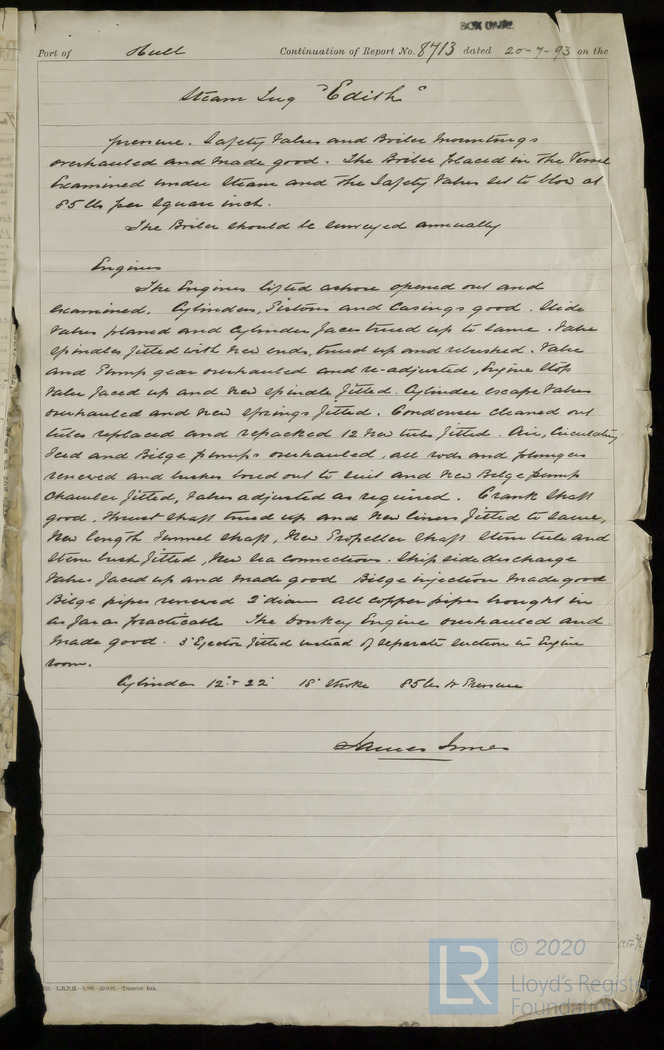 Port of Hull Continuation of Report No. 8713 dated 20-7-93 on the
Steam Tug "Edith"
pressure. Safety Valves and Boiler Mountings
overhauled and made good. The Boiler placed in the Vessel
Examined under steam and the Safety Valves set to blow at
85 lbs per square inch.
The Boiler should be surveyed annually
Engines
The Engines lifted ashore opened out and
examined. Cylinders, Pistons and Casings good. Slide
Valves planed and Cylinder faces trued up to same. Valve
spindles fitted with new ends, trued up and rebushed. Valve
and Pump gear overhauled and re-adjusted, Engine Stop
Valve faced up and new spindle fitted. Cylinder escape Valves
overhauled and new springs fitted. Condenser cleaned out
tubes replaced and repacked 12 new tubes fitted. Air, Circulating
Feed and Bilge pumps overhauled, all rods and plungers
renewed and bushes bored out to suit and new Bilge pump
chamber fitted, Valves adjusted as required. Crank shaft
good. Thrust shaft trued up and new liners fitted to same,
New length Tunnel shaft, New Propeller shaft Stern tube and
stern bush fitted, New sea connections. Ship side discharge
Valves faced up and made good Bilge injection made good
Bilge pipes renewed 2" diam All copper pipes brought in
as far as practicable The Donkey Engine overhauled and
made good. 3" Ejector fitted instead of separate suction in Engine
room.
Cylinders 12" + 22" 18" Stroke 85 lbs Pressure
James Innes
L.R.P.H. Transfer Ink.
LR © 2020
Lloyd's Register
Foundation